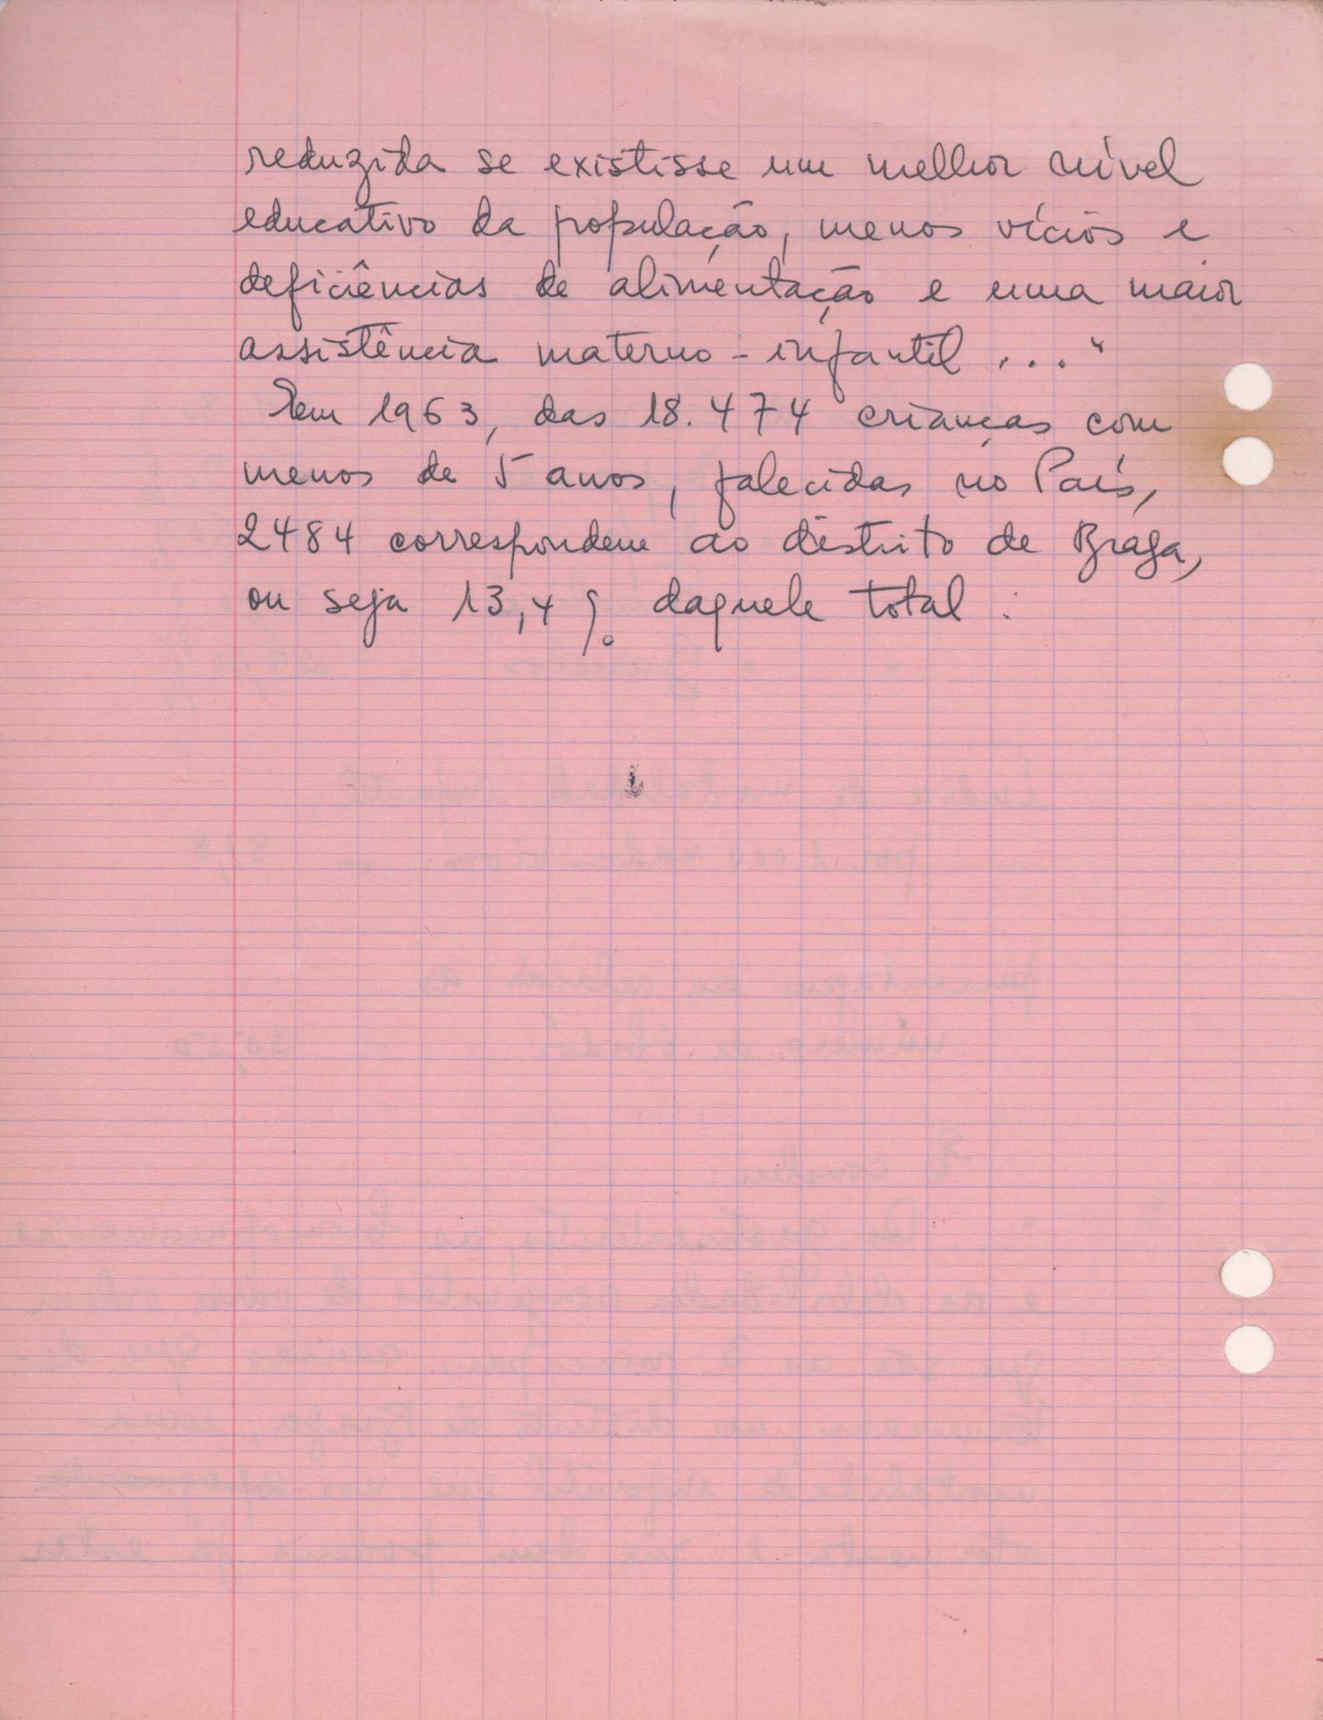 reduzida se existisse um melhor nível
educativo da população, menos vícios e
deficiências de alimentação e uma maior
assistência materno-infantil ..."
Em 1963, das 18.474 crianças com
menos de 5 anos, falecidas no País,
2484 correspondem ao distrito de Braga,
ou seja 13,4 % daquele total :